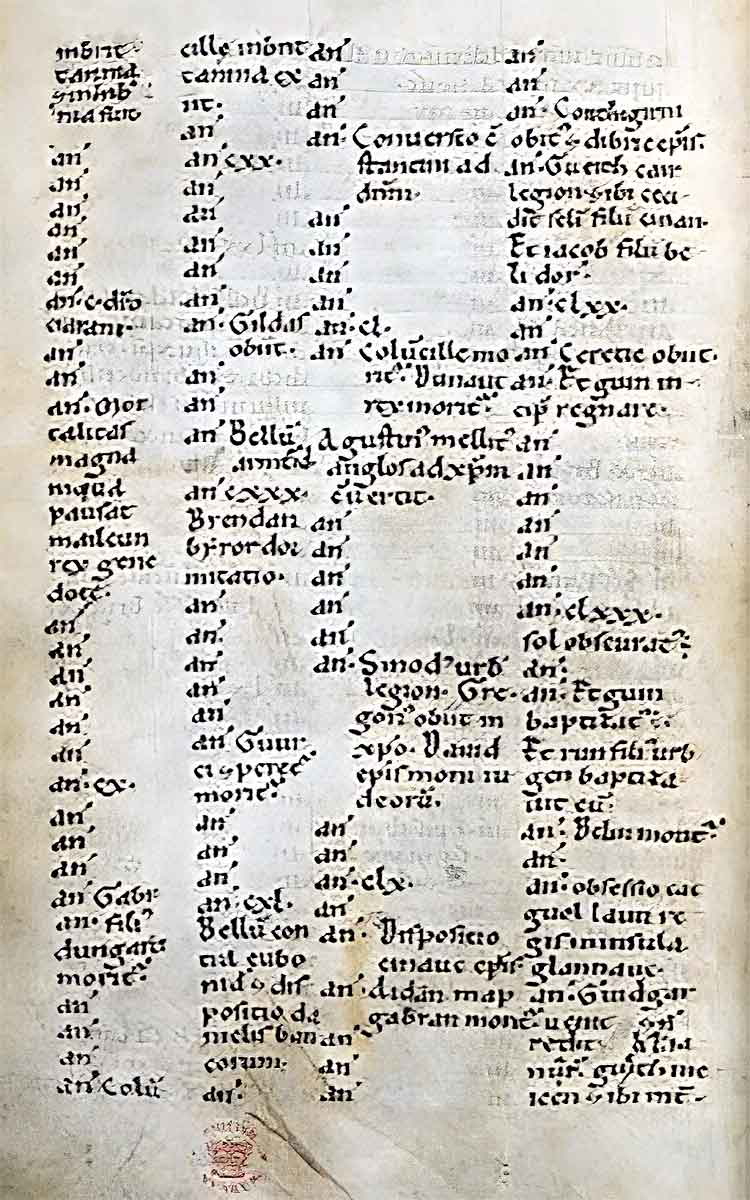 inbrit
tannia
⁊ inhib
nia fuit
an'
an'
an'
an'
an'
an'
an'. c. dr̄o
ciarani.
an'
an'
an'. Mor
talitas
magna
inqua
pausat
mailcun
rex gene
dotę.
an'
an'
an'
an'
an'
an'
an'. cx.
an'
an'
an'
an' Gabr
an'. fili'
dungart
morit'.
an'
an'
an'
an' Colū
cille inbrit
tannia ex
iit.
an'
an' cxx.
an'
an'
an'
an'
an'
an'. Gildas
obiit.
an'
an'
an' Bellū
armterid
an' cxxx.
Brendan
byror dor
mitatio.
an'
an'
an'
an'
an'
an' Guur
ci ⁊ peretur
morit'.
an'
an'
an'
an' cxl.
Bellū con
tra eubo
niā ⁊ dis
positio da
nielis ban
corum.
an'
an'
an'
an'
an'. Conversio c̄
stantini ad
dn̄m.
an'
an'
an'
an'
an' cl.
an' Colūcille mo
rit'. Dunaut
rex morit'.
Agustin' mellit'
anglos ad xp̄m
c̄uertit.
an'
an'
an'
an'
an'
an'. Sinod' urb'
legion. Gre
gori' obiit in
xp̄o. David
epis moni iu
deorū.
an'
an'
an' clx.
an'
an'. Dispositio
cinauc epis
an' aidan map
gabran morit'.
an'
an'
an'
an'
an'
an'
an'. Conthigirni
obit' ⁊ dibric epīs.
an'. Gueith cair
legion. ⁊ ibi ceci
dit selim filii cinan.
Et iacob filii be
li dor'.
an' clxx.
an'
an' Ceretic obiit.
an'. Etguin in
cip̄ regnare.
an'
an'
an'
an'
an'
an'
an'. clxxx.
sol obscurat' ē.
an'.
an'. Etguin
baptizat' ē.
Et run fili' urb
gen baptiza
uit eū.
an'. Belin morit'.
an'
an'. obsessio cat
guollaun re
gis in insula
glannauc.
an'. Guidgar
uenit ⁊ n̄
redit.
nūr. gueith me
icen ⁊ ibi int̄